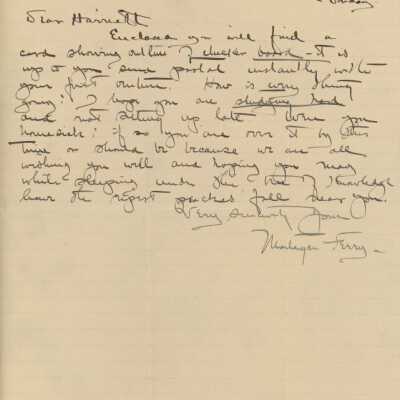 Friday
Dear Harriett
Enclosed you will find a
card showing outline of checker board - it is
up to you send postal instantly with
your first outline. How is every thing
going? I hope you are studying hard
and not sitting up late. Were you
homesick? if so you are over it by this
time or should be because we are all
wishing you well and hoping you may
while sleeping under the tree of Knowledge
have the ripest peaches fall near you.
Very sincerely yours
Ferry -